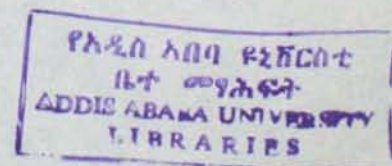 የአዲስ አበባ ዩኒቨርስቲ
ቤተ መጻሕፍት
ADDIS ABABA UNIVERSITY
LIBRARIES